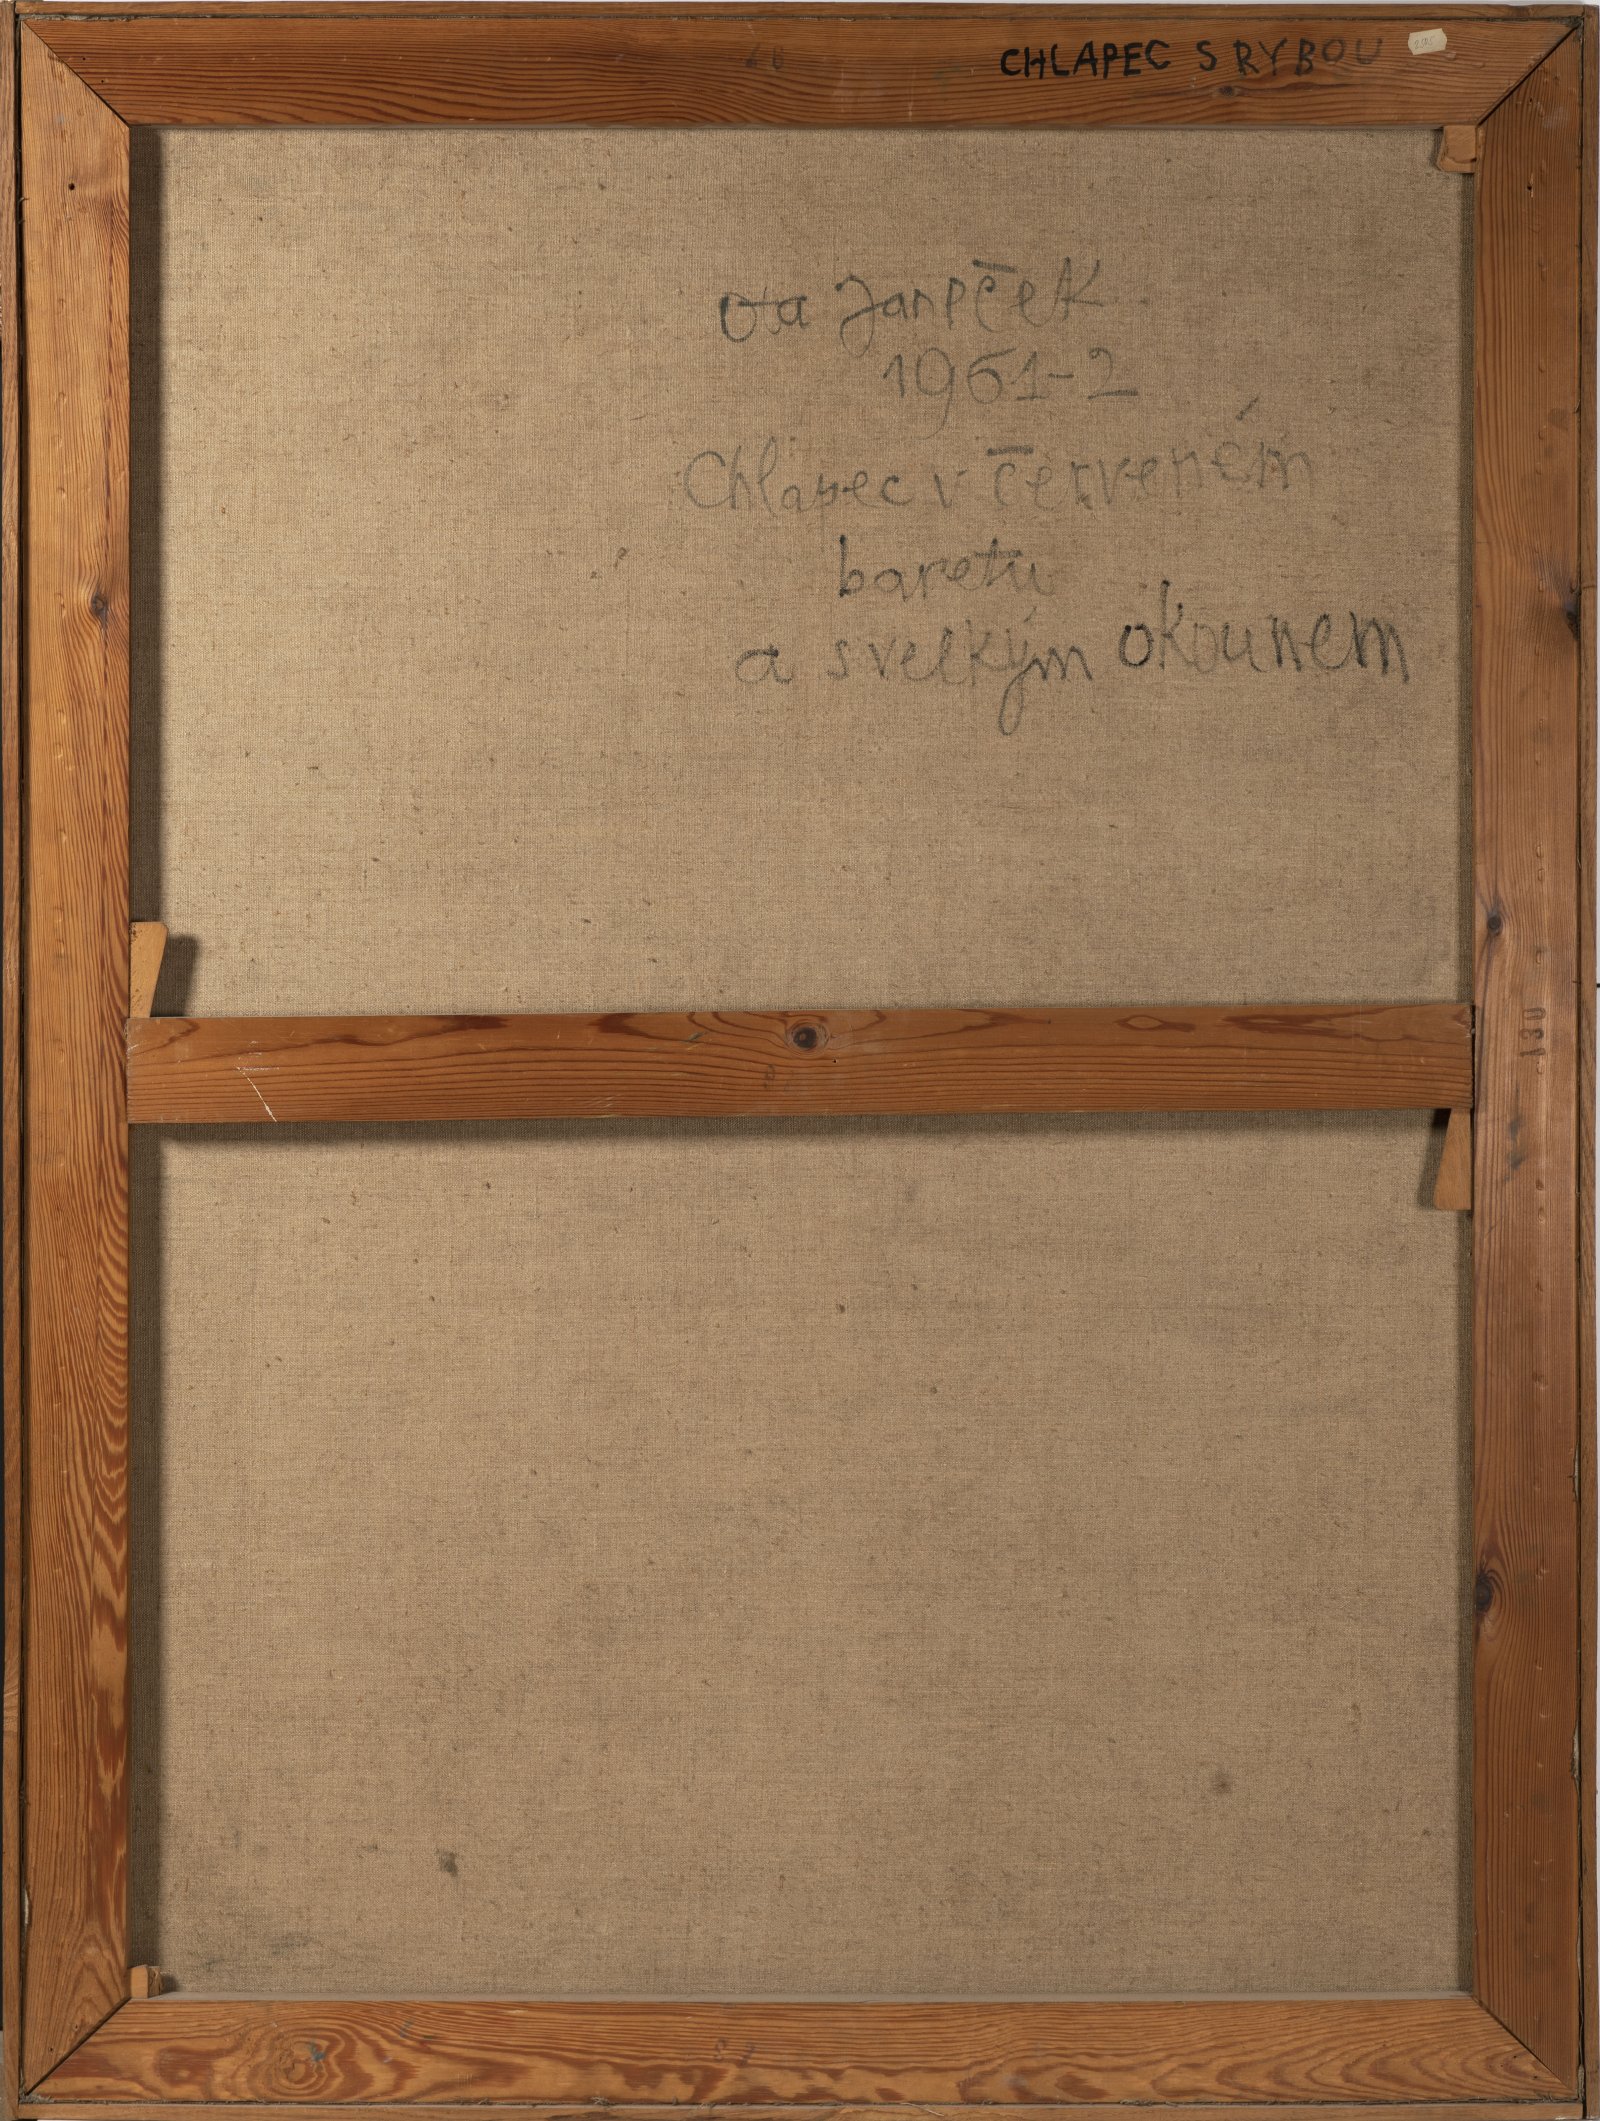 CHLAPEC S RYBOU
Ota Janeček
1961-2
Chlapec v červeném
baretu
a s velkým okounem
130